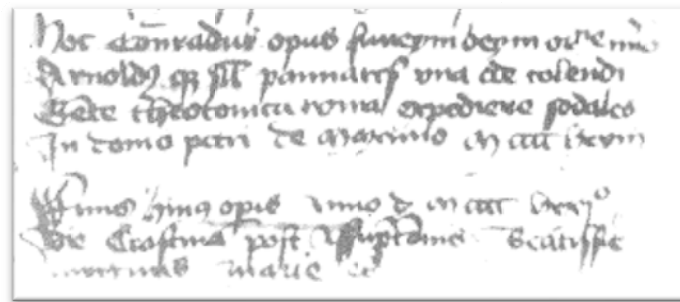 Hoc Conradus opus suueynheym ordine miro
Arnoldus que simul pannartz una ede colendi
Gente theotonica rome expediere sodales
In domo petri de Maximo M cccc
finis huius operis anno d M cccc
Die Crastina post Assumptionis Beatissime
marie